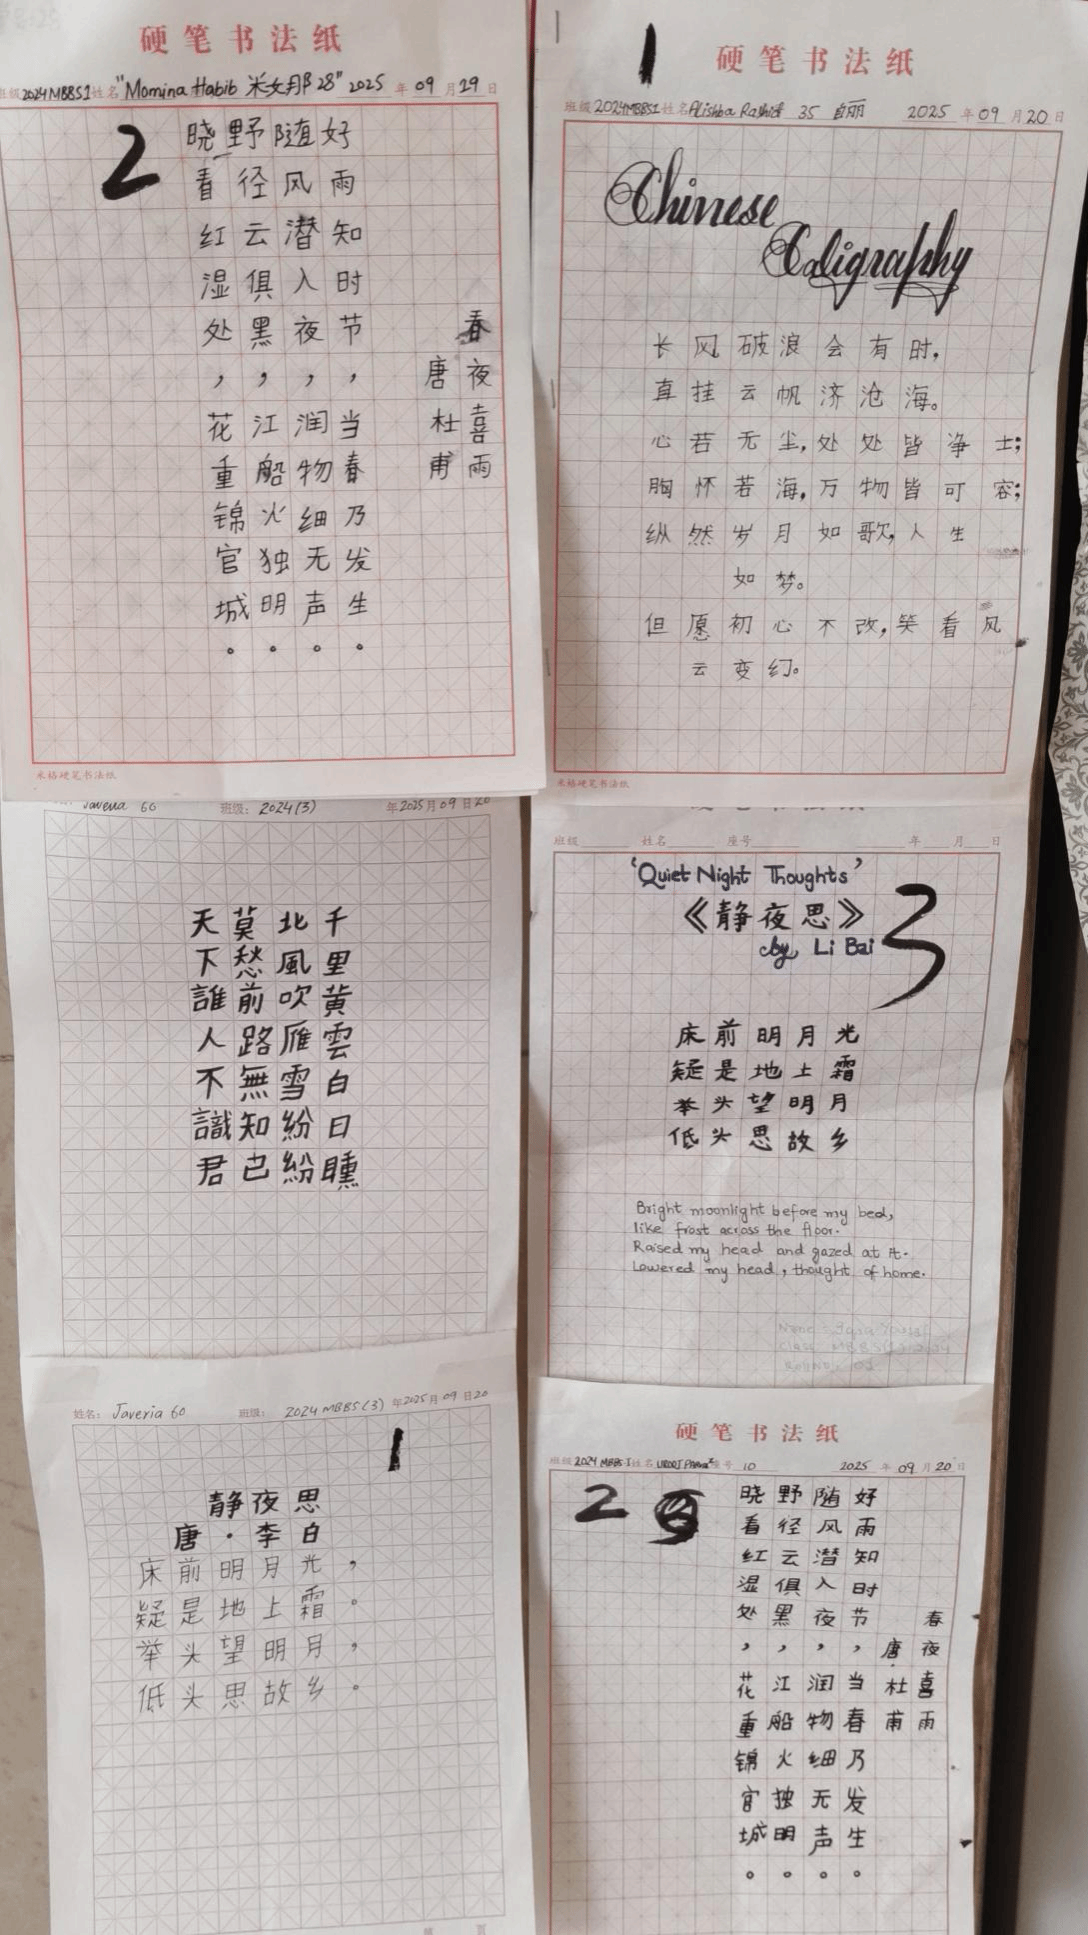 硬笔书法纸
班级 2024MBBS1 姓名 "Momina Habib 28" 2025 年 09 月 29 日
2
春夜喜雨
唐杜甫
好雨知时节，当春乃发生。
随风潜入夜，润物细无声。
野径云俱黑，江船火独明。
晓看红湿处，花重锦官城。
米格硬笔书法纸
硬笔书法纸
1
班级 2024MBBS1 姓名 Alishba Rashid 35 2025 年 09 月 20 日
Chinese
Caligraphy
长风破浪会有时，
直挂云帆济沧海。
心若无尘，处处皆净士；
胸怀若海，万物皆可容；
纵然岁月如歌，人生
如梦。
但愿初心不改，笑看风
云变幻。
米格硬笔书法纸
Javeria 60 班级： 2024(3) 年 2025 月 09 日 20
千里黄雲白日曛
北風吹雁雪紛紛
莫愁前路無知已
天下誰人不識君
班级 姓名 座号 年 月 日
'Quiet Night Thoughts'
《静夜思》
by Li Bai
3
床前明月光
疑是地上霜
举头望明月
低头思故乡
Bright moonlight before my bed,
like frost across the floor.
Raised my head and gazed at it.
Lowered my head, thought of home.
姓名： Javeria 60 班级： 2024 MBBS(3) 年 2025 月 09 日 20
1
静夜思
唐·李白
床前明月光，
疑是地上霜。
举头望明月，
低头思故乡。
硬笔书法纸
班级 2024 MBBS-I 姓名 座号 10 2025 年 09 月 20 日
2
春夜喜雨
唐·杜甫
好雨知时节，当春乃发生。
随风潜入夜，润物细无声。
野径云俱黑，江船火独明。
晓看红湿处，花重锦官城。